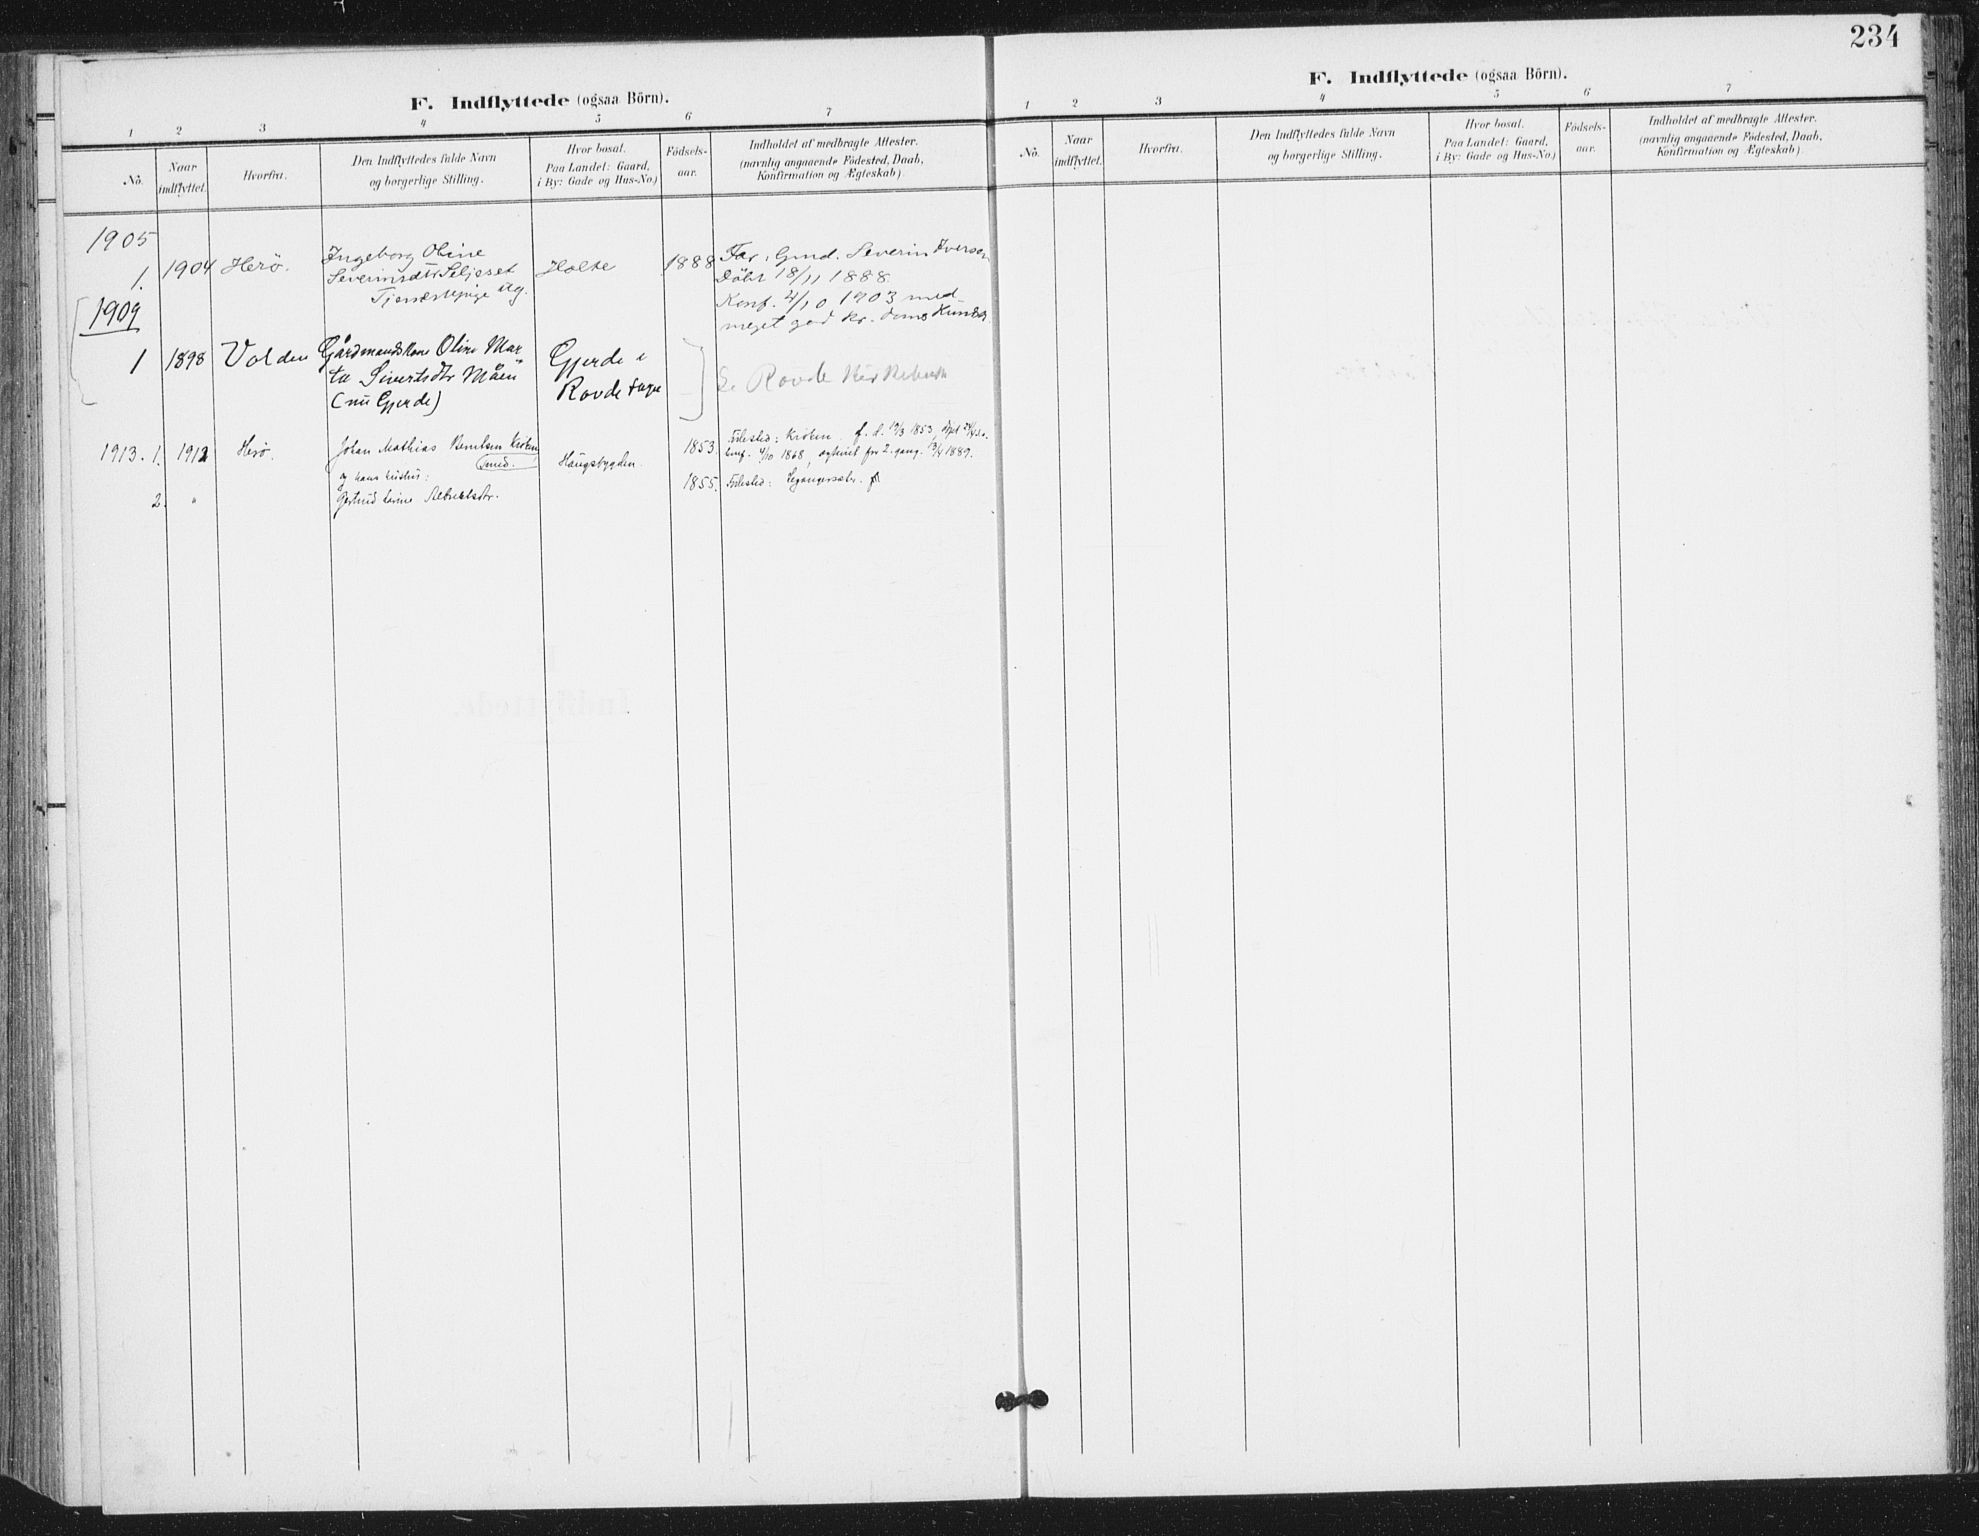 234
F. Indflyttede (ogsaa Börn).
1 2 3 4 5 6 7
No. Naar indflyttet. Hvorfra. Den Indflyttedes fulde Navn og borgerlige Stilling. Hvor bosat. Paa Landet: Gaard, i By: Gade og Hus-No.) Fødsels-aar. Indholdet af medbragte Attester. (navnlig angaaende Fødested, Daab, Konfirmation og Ægteskab).
1905
1. 1904 Herö. Ingeborg Oline Holte 1888 Far: Gmd. Severin Iversen
Severinsdtr Seljeset Döbt 18/11 1888.
Tjenestepige ug. Konf. 4/10 1903 med
meget god kr. doms Kundsk.
1909
1 1898 Volden Gårdmandskone Oline Mar- Gjerde i
ta Sivertsdtr Måen Rovde
(nu Gjerde)
Se Rovde
1913. 1. 1912 Herø. Johan Mathias Berntsen Kroken Haugsbygden. 1853. Fødested: Kroken. f. d. 19/3 1853, døpt 24/4 s.a.
Smed. konf. 4/10 1868, egteviet for 2. gang 13/4 1889.
og hans hustru:
2. " Gertrud Larine Albretsdtr. 1855. Fødested:
F. Indflyttede (ogsaa Börn).
1 2 3 4 5 6 7
No. Naar indflyttet. Hvorfra. Den Indflyttedes fulde Navn og borgerlige Stilling. Hvor bosat. Paa Landet: Gaard, i By: Gade og Hus-No.) Fødsels-aar. Indholdet af medbragte Attester. (navnlig angaaende Fødested, Daab, Konfirmation og Ægteskab).